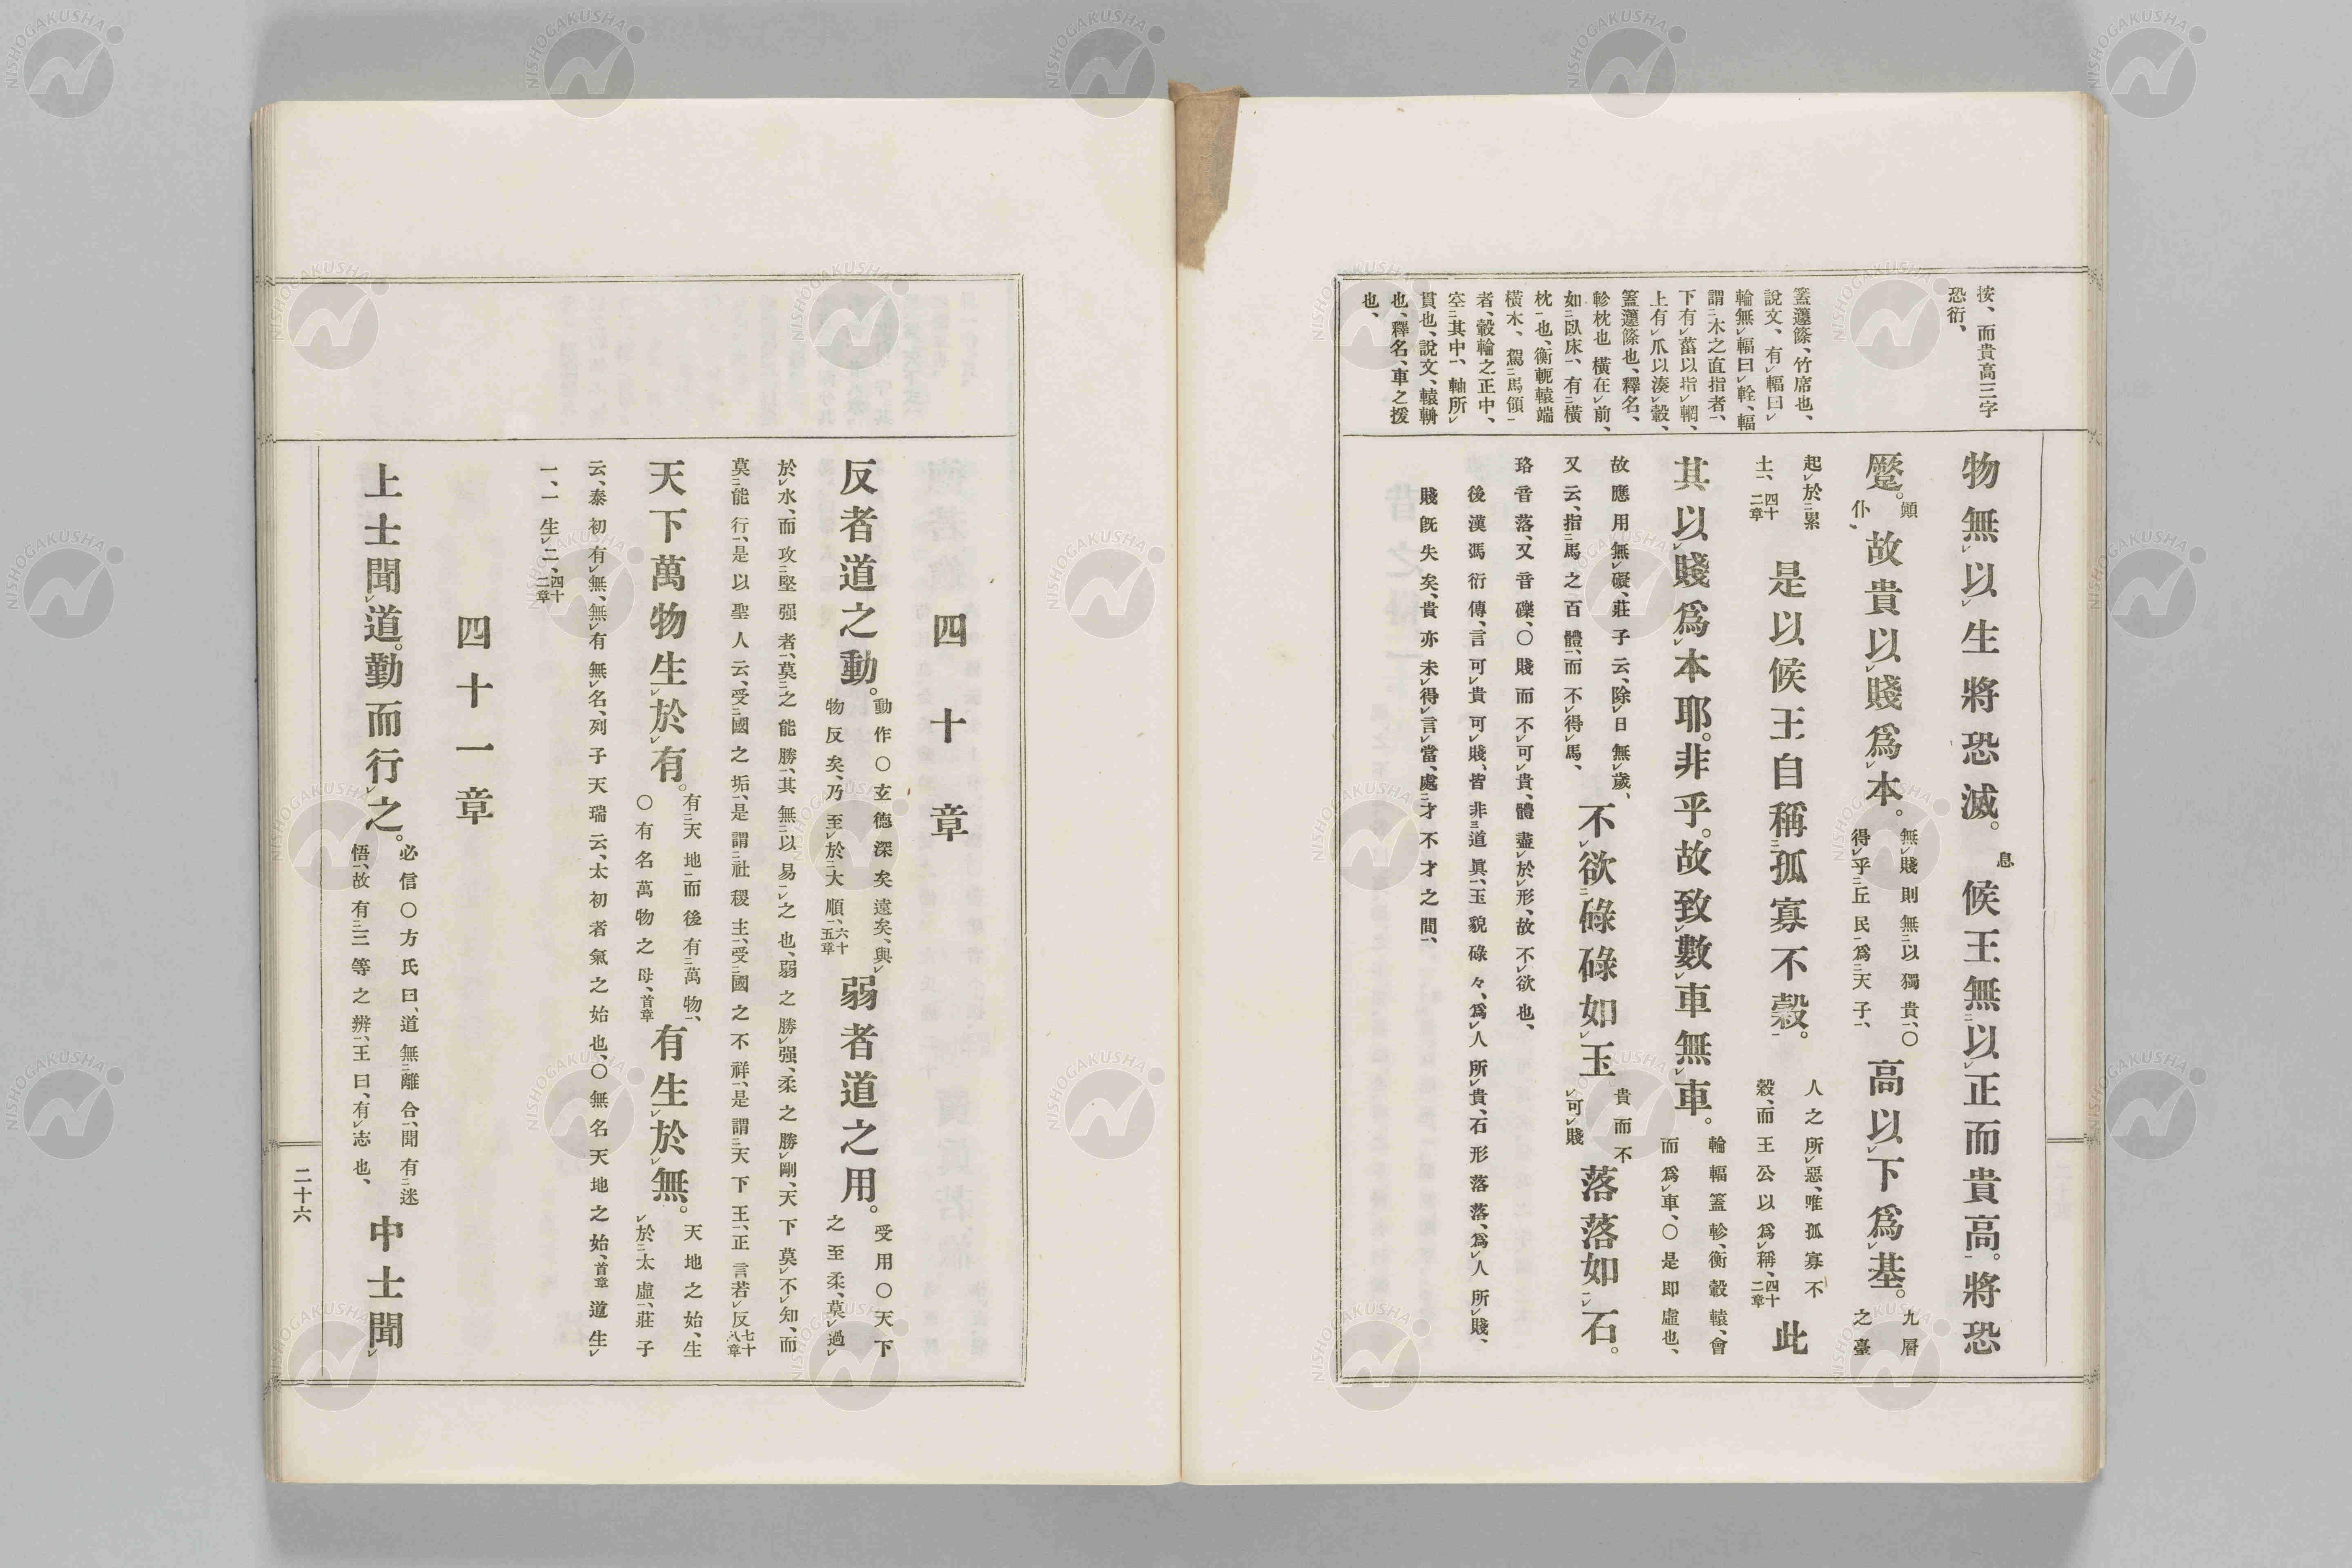 按、而貴高三字
恐衍、
簽籧篨、竹席也、
說文、有輻曰
輪無輻曰輇、輻
謂木之直指者、
下有菑以指輞、
上有爪以湊轂、
蓋籧篨也、釋名、
軫枕也橫在前、
如臥床、有橫
枕也、衡軛轅端
橫木、駕馬領
者、轂輪之正中、
空其中、軸所
貫也、說文、轅輈
也、釋名、車之援
也、
物無以生將恐滅。息候王無以正而貴高。將恐
蹷。顚仆、故貴以賤爲本。無賤則無以獨貴、〇得乎丘民爲天子、高以下爲基。九層之臺
起於累土、四十二章是以候王自稱孤寡不穀。人之所惡、唯孤寡不穀、而王公以爲稱、四十二章此
其以賤爲本耶。非乎。故致數車無車。輪輻蓋軫、衡轂轅、會而爲車、〇是卽虛也、
故應用無礙、莊子云、除日無歲、又云、指馬之百體、而不得馬、不欲碌碌如玉貴而不可賤落落如石。
珞音落、又音礫、〇賤而不可貴、體盡於形、故不欲也、
後漢馮衍傳、言可貴可賤、皆非道眞、玉貌碌々、爲人所貴、石形落落、爲人所賤、
賤旣失矣、貴亦未得、言當處才不才之間、
四十章
反者道之動。動作〇玄德深矣遠矣、與物反矣、乃至於大順、六十五章弱者道之用。受用〇天下之至柔、莫過
於水、而攻堅强者、莫之能勝、其無以易之也、弱之勝强、柔之勝剛、天下莫不知、而
莫能行、是以聖人云、受國之垢、是謂社稷主、受國之不祥、是謂天下王、正言若反七十八章
天下萬物生於有。有天地而後有萬物、〇有名萬物之母、首章有生於無。天地之始、生於太虛、莊子
云、泰初有無、無有無名、列子天瑞云、太初者氣之始也、〇無名天地之始、首章道生
一、一生二、四十二章
四十一章
上士聞道。勤而行之。必信〇方氏曰、道無離合、聞有迷悟、故有三等之辨、王曰、有志也、中士聞
二十六
NISHOGAKUSHA